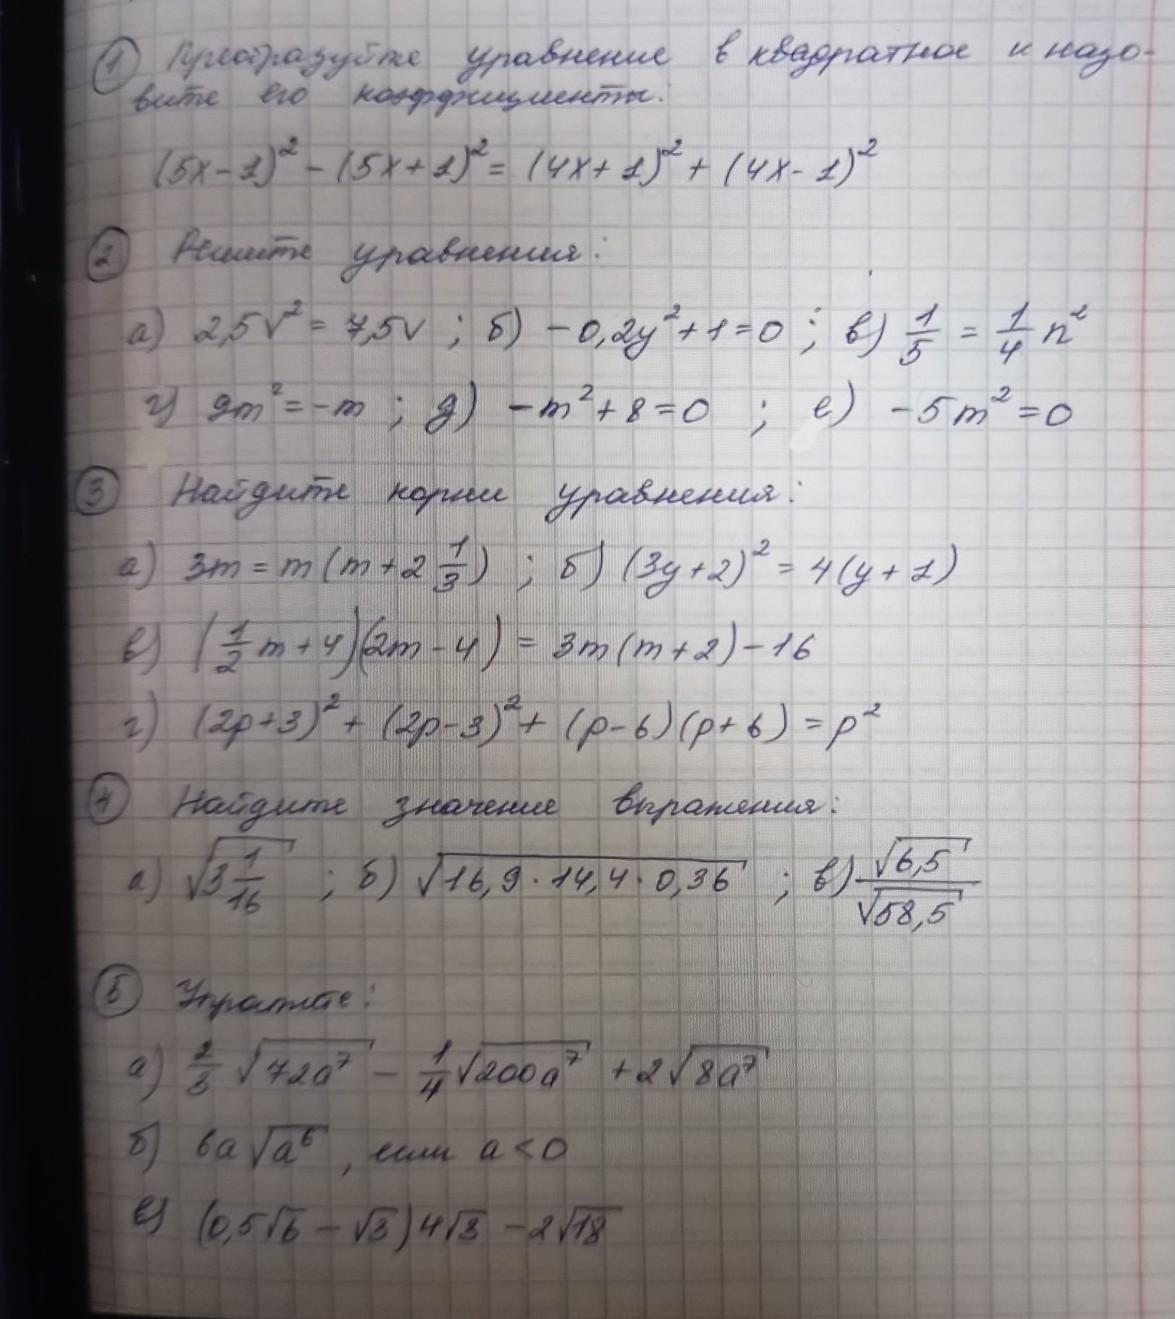 ① Преобразуйте уравнение в квадратное и назо-
вите его коэффициенты:
(5x-1)² - (5x+1)² = (4x+1)² + (4x-1)²
② Решите уравнения:
а) 2,5v² = 7,5v ; б) -0,2y² + 1 = 0 ; в) 1/5 = 1/4 n²
г) 9m² = -m ; д) -m² + 8 = 0 ; е) -5m² = 0
③ Найдите корни уравнения:
а) 3m = m(m + 2 1/3) ; б) (3y+2)² = 4(y+1)
в) (1/2 m + 4)(2m - 4) = 3m(m+2) - 16
г) (2p+3)² + (2p-3)² + (p-6)(p+6) = p²
④ Найдите значение выражения:
а) √(3 1/16) ; б) √(16,9 · 14,4 · 0,36) ; в) √6,5 / √58,5
⑤ Упростите:
а) 2/3 √(72a⁷) - 1/4 √(200a⁷) + 2√(8a⁷)
б) 6a√(a⁶), если a < 0
в) (0,5√6 - √3)4√3 - 2√18